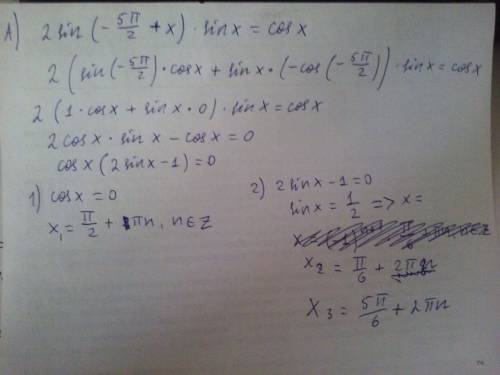 A) 2 sin (- 5π/2 + x) · sin x = cos x
2 (sin (- 5π/2) · cos x + sin x · (- cos (- 5π/2)) · sin x = cos x
2 (1 · cos x + sin x · 0) · sin x = cos x
2 cos x · sin x - cos x = 0
cos x (2 sin x - 1) = 0
1) cos x = 0
x₁ = π/2 + πn, n ∈ Z
2) 2 sin x - 1 = 0
sin x = 1/2 => x =
x₂ = π/6 + 2πn
x₃ = 5π/6 + 2πn